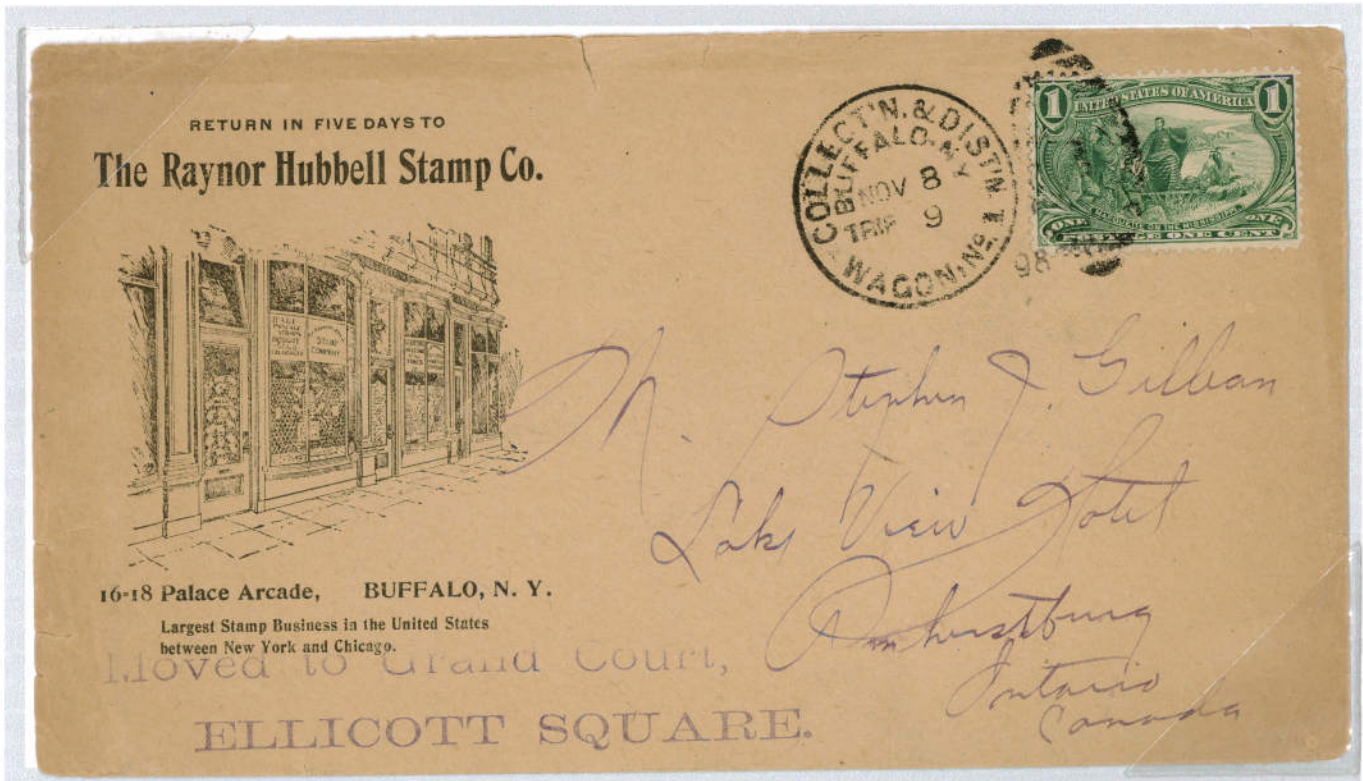 RETURN IN FIVE DAYS TO
The Raynor Hubbell Stamp Co.
STAMP
COMPANY
16-18 Palace Arcade, BUFFALO, N. Y.
Largest Stamp Business in the United States
between New York and Chicago.
Moved to Grand Court,
ELLICOTT SQUARE.
COLLECT'N. & DIST'N
BUFFALO. N.Y
NOV 8
TRIP 9
WAGON. No. 1
98
1 UNITED STATES OF AMERICA 1
MARQUETTE ON THE MISSISSIPPI
ONE ONE
ONE CENT
M. Stephen J. Gillean
Lake View Hotel
Amherstburg
Ontario
Canada